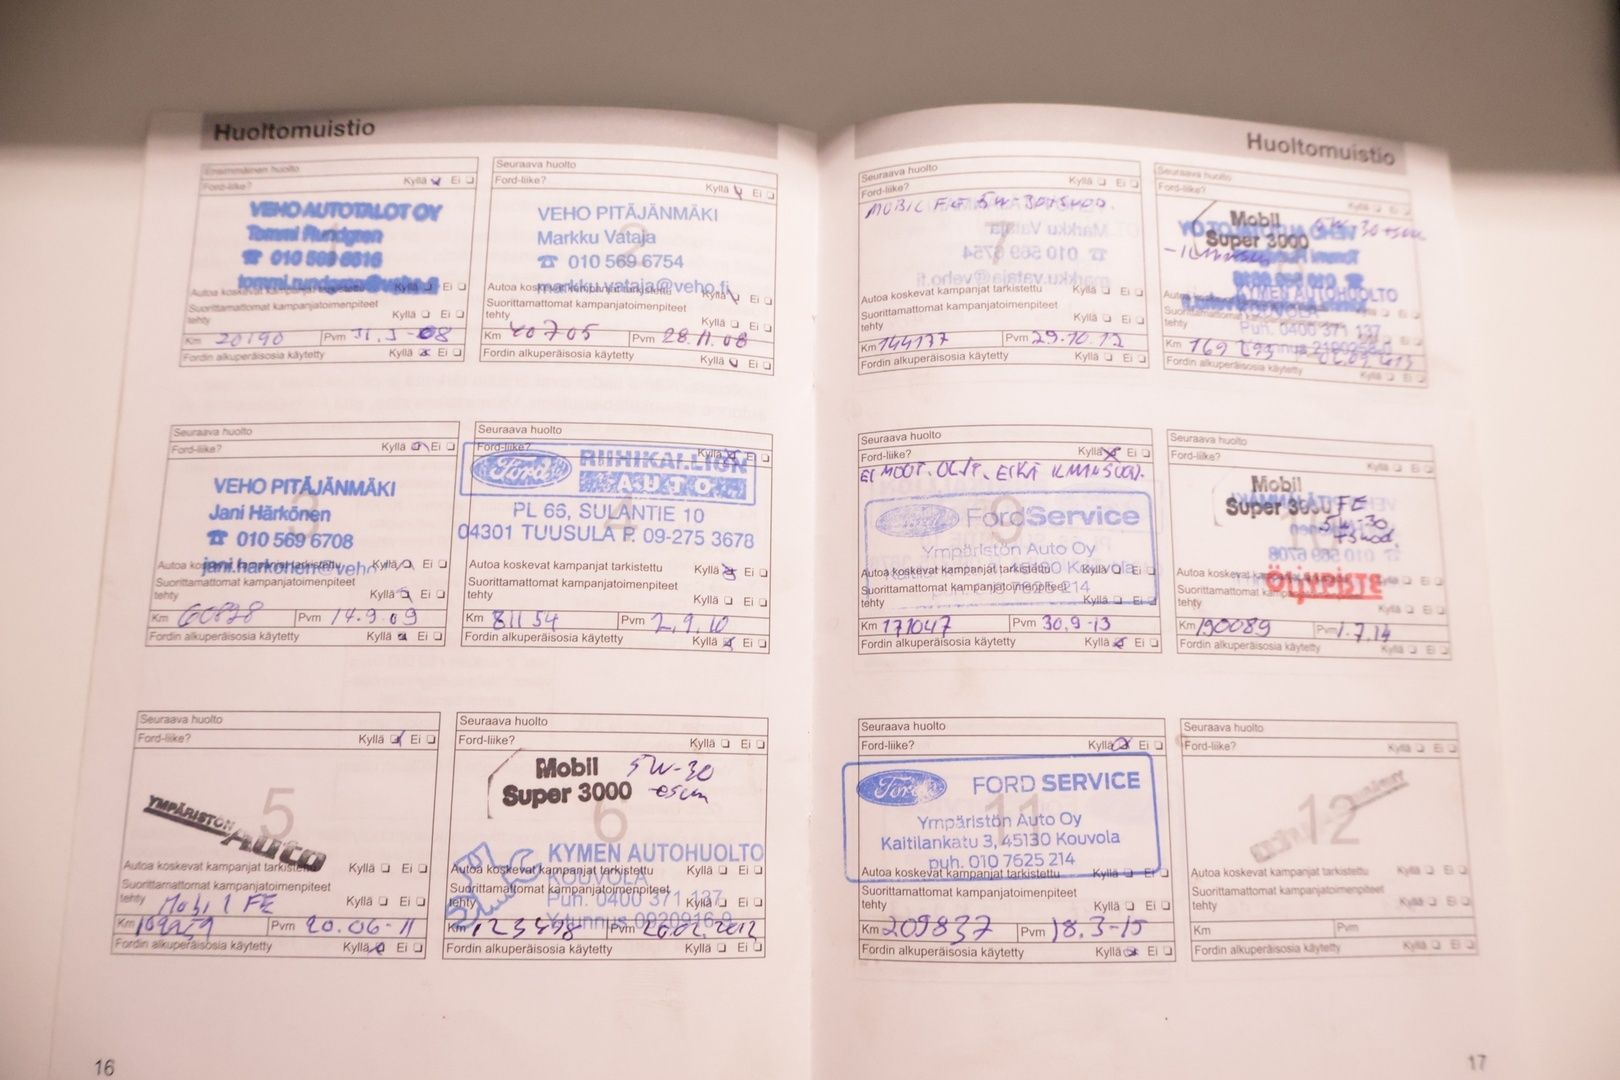 Huoltomuistio
Ensimmäinen huolto
Ford-liike?
Kyllä Ei
VEHO AUTOTALOT OY
Tommi Rundgren
☎ 010 569 6616
tommi.rundgren@veho.fi
Autoa koskevat kampanjat tarkistettu Kyllä Ei
Suorittamattomat kampanjatoimenpiteet
tehty Kyllä Ei
Km 20190 Pvm 31.3-08
Fordin alkuperäisosia käytetty Kyllä Ei
Seuraava huolto
Ford-liike?
Kyllä Ei
2
VEHO PITÄJÄNMÄKI
Markku Vataja
☎ 010 569 6754
markku.vataja@veho.fi
Autoa koskevat kampanjat tarkistettu Kyllä Ei
Suorittamattomat kampanjatoimenpiteet
tehty Kyllä Ei
Km 40705 Pvm 28.11.08
Fordin alkuperäisosia käytetty Kyllä Ei
Seuraava huolto
Ford-liike? Kyllä Ei
3
VEHO PITÄJÄNMÄKI
Jani Härkönen
☎ 010 569 6708
jani.harkonen@veho
Autoa koskevat kampanjat tarkistettu Kyllä Ei
Suorittamattomat kampanjatoimenpiteet
tehty Kyllä Ei
Km 60828 Pvm 14.9.09
Fordin alkuperäisosia käytetty Kyllä Ei
Seuraava huolto
Ford-liike? Kyllä Ei
4
Ford RIIHIKALLION
AUTO
PL 66, SULANTIE 10
04301 TUUSULA P. 09-275 3678
Autoa koskevat kampanjat tarkistettu Kyllä Ei
Suorittamattomat kampanjatoimenpiteet
tehty Kyllä Ei
Km 81154 Pvm 2.9.10
Fordin alkuperäisosia käytetty Kyllä Ei
Seuraava huolto
Ford-liike? Kyllä Ei
5
YMPÄRISTÖN Auto
Autoa koskevat kampanjat tarkistettu Kyllä Ei
Suorittamattomat kampanjatoimenpiteet
tehty Mobil 1 FE Kyllä Ei
Km Pvm 20.06-11
Fordin alkuperäisosia käytetty Kyllä Ei
Seuraava huolto
Ford-liike? Kyllä Ei
6
Mobil 5W-30
Super 3000
KYMEN AUTOHUOLTO
KOUVOLA
Autoa koskevat kampanjat tarkistettu Kyllä Ei
Suorittamattomat kampanjatoimenpiteet
Puh. 0400 371 137
tehty
Y-tunnus 0920916-9
Km 123498 Pvm 2012
Fordin alkuperäisosia käytetty Kyllä Ei
16
Huoltomuistio
Seuraava huolto
Ford-liike? Kyllä Ei
7
Autoa koskevat kampanjat tarkistettu Kyllä Ei
Suorittamattomat kampanjatoimenpiteet
tehty Kyllä Ei
Km 144177 Pvm 29.10.12
Fordin alkuperäisosia käytetty Kyllä Ei
Mobil
Super 3000
KYMEN AUTOHUOLTO
KOUVOLA
Puh. 0400 371 137
Km 169 Pvm
Fordin alkuperäisosia käytetty Kyllä Ei
Seuraava huolto
Ford-liike? Kyllä Ei
9
FordService
Ympäristön Auto Oy
Autoa koskevat kampanjat tarkistettu Kyllä Ei
Suorittamattomat kampanjatoimenpiteet
tehty Kyllä Ei
Km 171047 Pvm 30.9-13
Fordin alkuperäisosia käytetty Kyllä Ei
Seuraava huolto
Ford-liike? Kyllä Ei
Mobil
Super 3000 FE
5W-30
ÖLJYPISTE
Autoa koskevat kampanjat tarkistettu Kyllä Ei
Suorittamattomat kampanjatoimenpiteet
tehty Kyllä Ei
Km 190089 Pvm 1.7.14
Fordin alkuperäisosia käytetty Kyllä Ei
Seuraava huolto
Ford-liike? Kyllä Ei
11
Ford FORD SERVICE
Ympäristön Auto Oy
Kaitilankatu 3, 45130 Kouvola
puh. 010 7625 214
Autoa koskevat kampanjat tarkistettu Kyllä Ei
Suorittamattomat kampanjatoimenpiteet
tehty Kyllä Ei
Km 209837 Pvm 18.3-15
Fordin alkuperäisosia käytetty Kyllä Ei
Seuraava huolto
Ford-liike? Kyllä Ei
12
Autoa koskevat kampanjat tarkistettu Kyllä Ei
Suorittamattomat kampanjatoimenpiteet
tehty Kyllä Ei
Km Pvm
Fordin alkuperäisosia käytetty Kyllä Ei
17